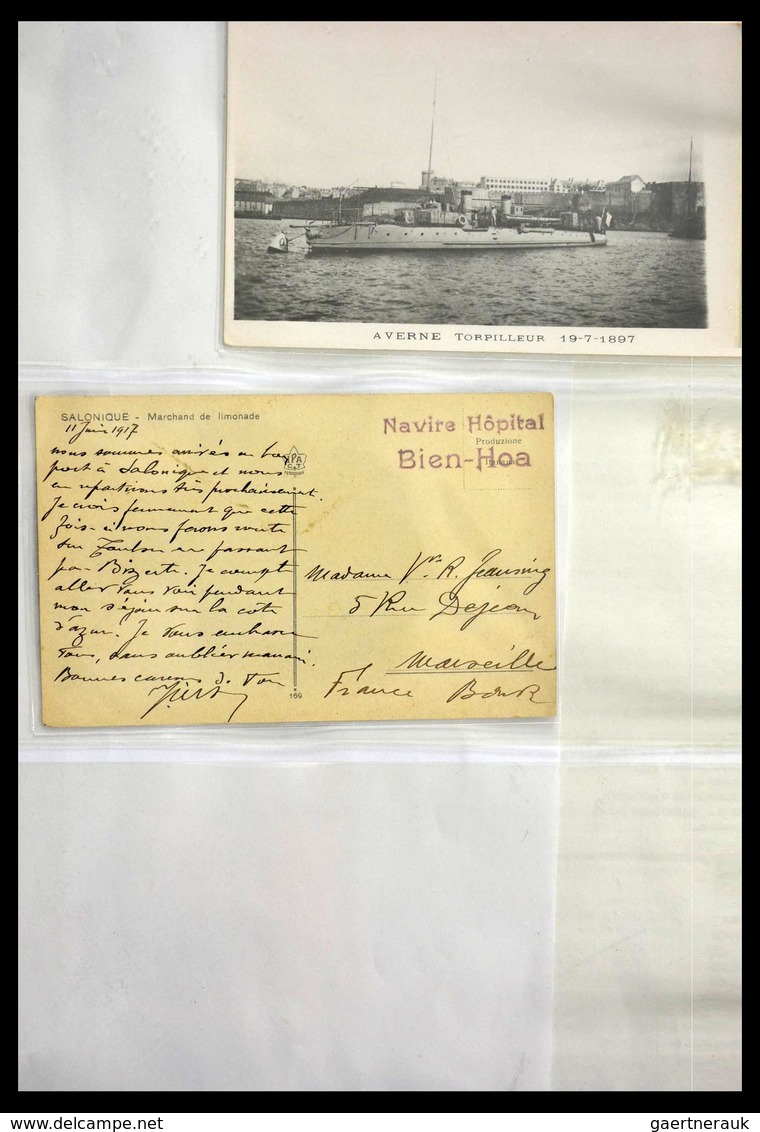 AVERNE TORPILLEUR 19-7-1897
SALONIQUE - Marchand de limonade
11 Juin 1917
nous sommes arrivés en bon
port à Salonique et nous
en repartirons très prochainement.
Je crois fermement que cette
fois-ci nous ferons route
sur Toulon en passant
par Bizerte. Je compte
aller vous voir pendant
mon séjour sur la côte
d'azur. Je vous embrasse
tous, sans oublier
Bonnes caresses de ton
169
Navire Hôpital
Bien-Hoa
Produzione
Madame Vve R.
5 Rue Dejean
Marseille
France
delcampe.net
gaertnerauk